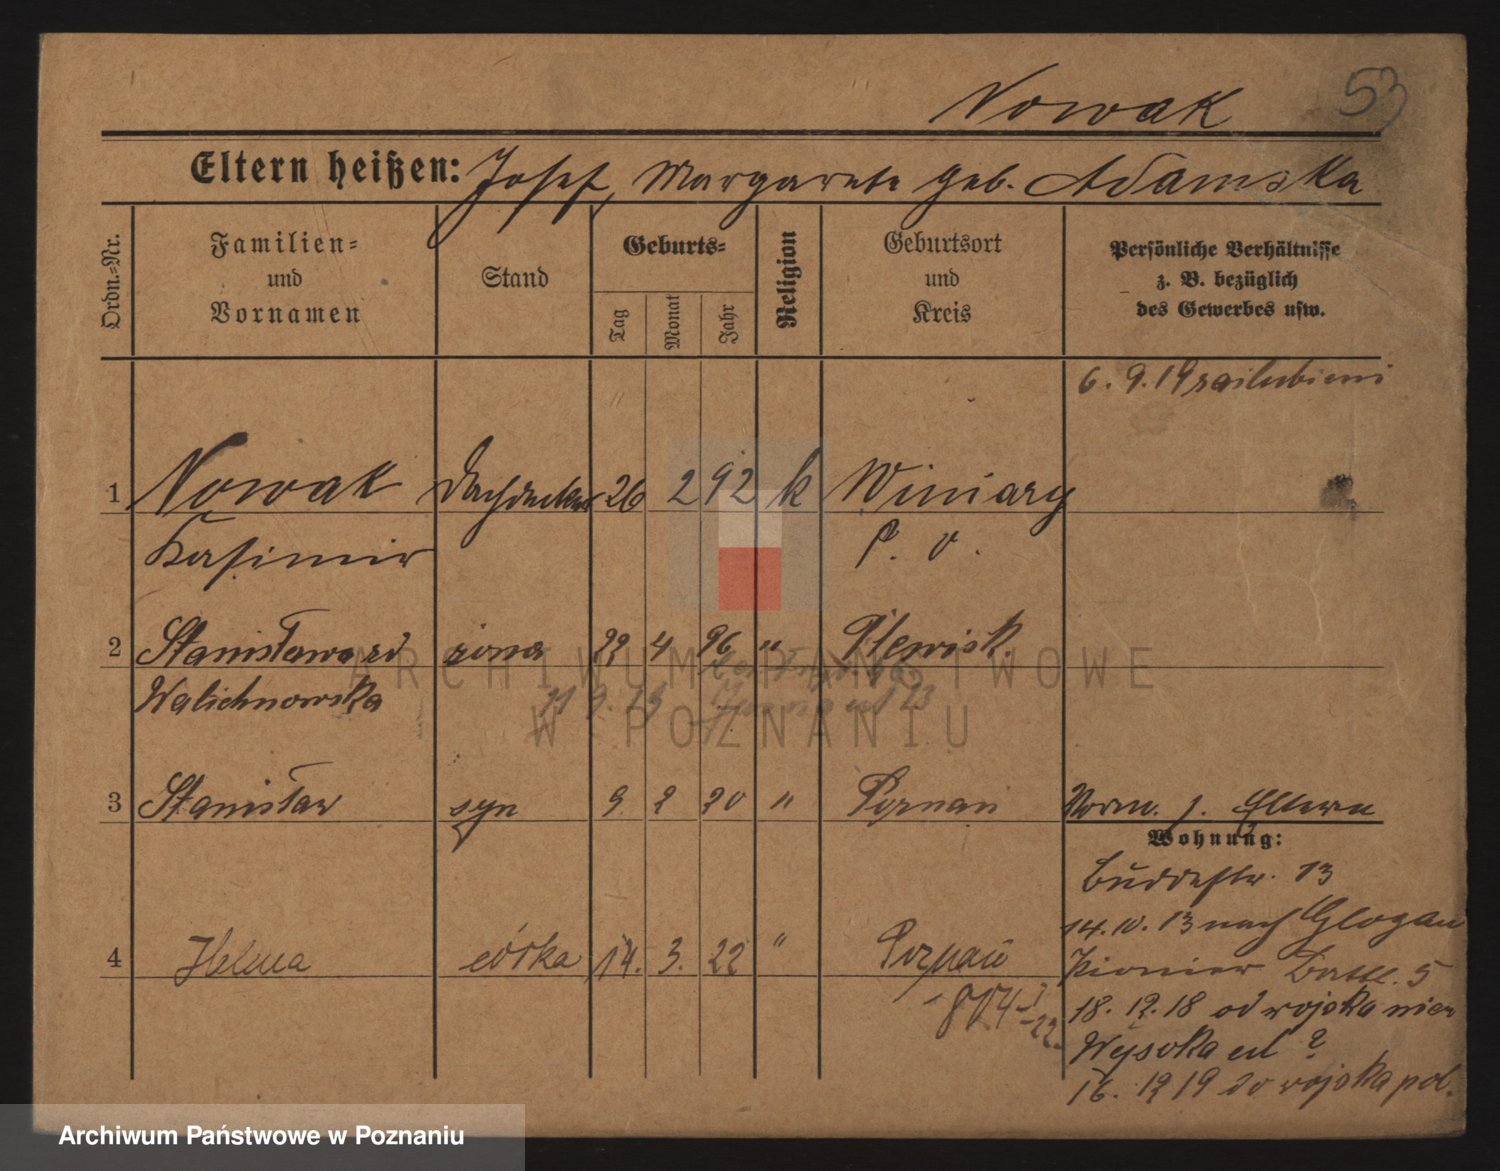 53
Nowak
Eltern heißen: Josef, Margarete geb. Adamska
Ordn.-Nr.
Familien-
und
Vornamen
Stand
Geburts-
Tag
Monat
Jahr
Religion
Geburtsort
und
Kreis
Persönliche Verhältnisse
z. B. bezüglich
des Gewerbes usw.
6. 9. 19 zailubieni
1 Nowak Dachdecker 26 2 92 k Winiary
Kasimir P. O.
2 Stanisława zd żona 22 4 96 " Plewisk.
Walichnowska
21 9. 23
3 Stanisław syn 9 2 20 " Poznań
Vorm. s. Eltern
Wohnung:
Buddestr. 13
14. 10. 13 nach Glogau
4 Helena córka 14. 3. 22 " Poznań
Pionier Batl. 5
804
18. 12. 18 od wojska
Wysoka
16. 12 19 do wojska pol.
ARCHIWUM PAŃSTWOWE
W POZNANIU
Archiwum Państwowe w Poznaniu